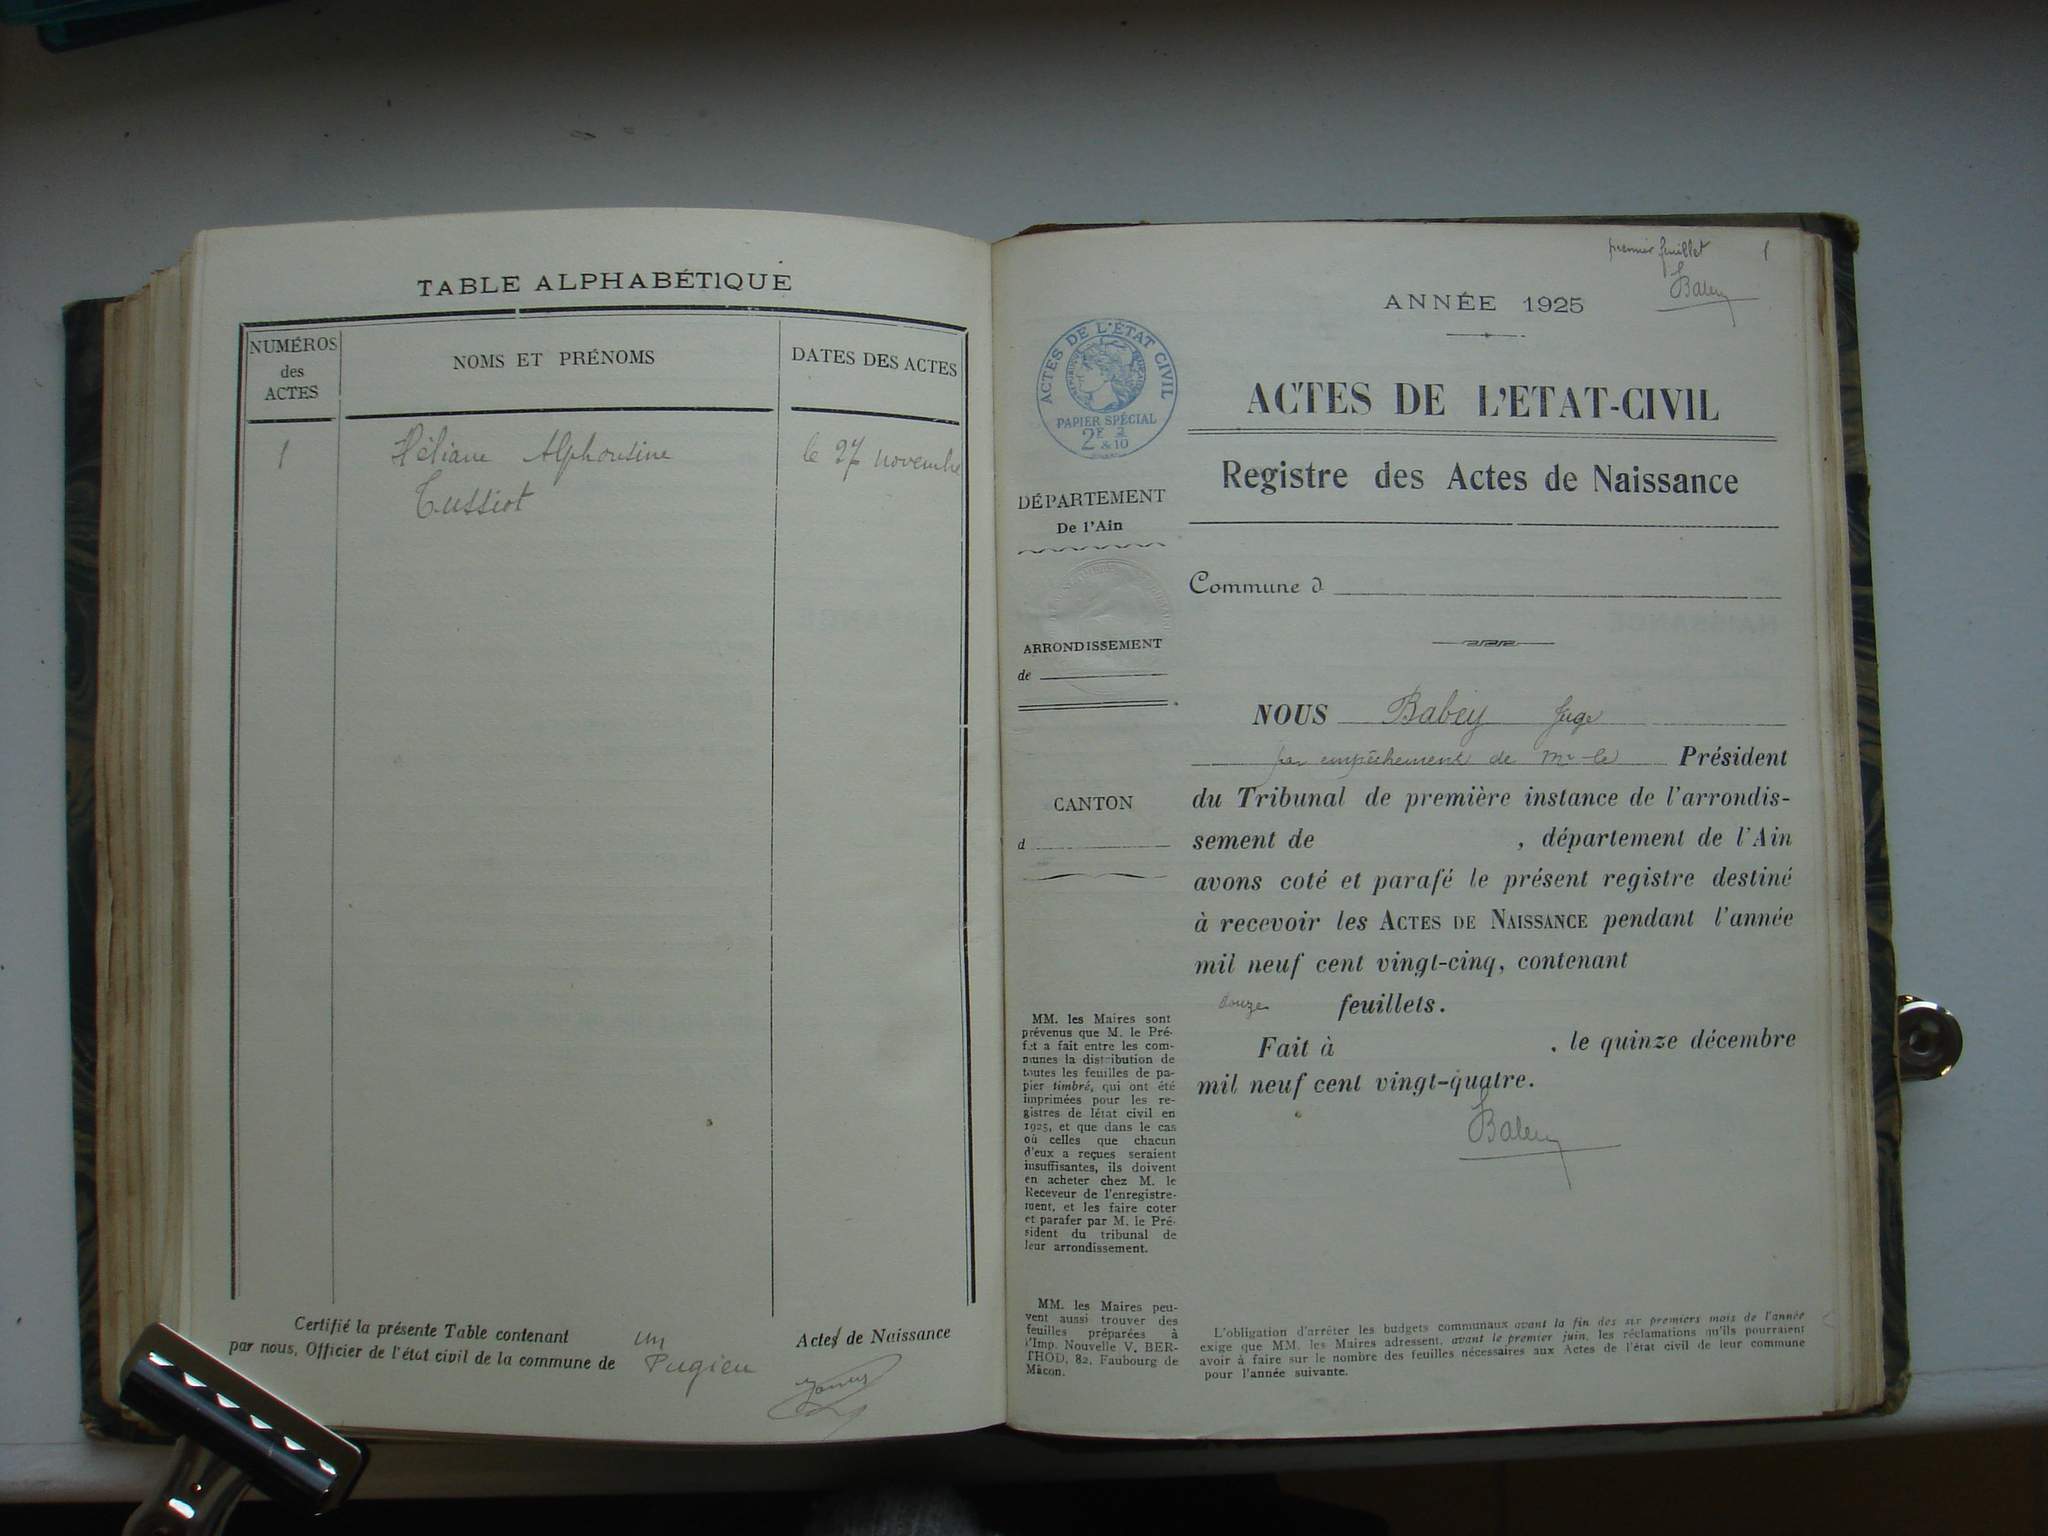 TABLE ALPHABÉTIQUE
NUMÉROS
des
ACTES
NOMS ET PRÉNOMS
DATES DES ACTES
1 Héliane Alphonsine le 27 novembre
Tussiot
Certifié la présente Table contenant un Actes de Naissance
par nous, Officier de l'état civil de la commune de Pugieu
premier feuillet 1
Babey
ANNÉE 1925
ACTES DE L'ÉTAT CIVIL
RÉPUBLIQUE FRANÇAISE
PAPIER SPÉCIAL
2F 2
& 10
ACTES DE L'ETAT-CIVIL
Registre des Actes de Naissance
DÉPARTEMENT
De l'Ain
Commune d
ARRONDISSEMENT
de
CANTON
d
NOUS Babey Juge
par empêchement de Mr le Président
du Tribunal de première instance de l'arrondis-
sement de , département de l'Ain
avons coté et parafé le présent registre destiné
à recevoir les ACTES DE NAISSANCE pendant l'année
mil neuf cent vingt-cinq, contenant
douze feuillets.
Fait à , le quinze décembre
mil neuf cent vingt-quatre.
Babey
MM. les Maires sont
prévenus que M. le Pré-
fet a fait entre les com-
munes la distribution de
toutes les feuilles de pa-
pier timbré, qui ont été
imprimées pour les re-
gistres de létat civil en
1925, et que dans le cas
où celles que chacun
d'eux a reçues seraient
insuffisantes, ils doivent
en acheter chez M. le
Receveur de l'enregistre-
ment, et les faire coter
et parafer par M. le Pré-
sident du tribunal de
leur arrondissement.
MM. les Maires peu-
vent aussi trouver des
feuilles préparées à
l'Imp. Nouvelle V. BER-
THOD, 82, Faubourg de
Mâcon.
L'obligation d'arrêter les budgets communaux avant la fin des six premiers mois de l'année
exige que MM. les Maires adressent, avant le premier juin, les réclamations qu'ils pourraient
avoir à faire sur le nombre des feuilles nécessaires aux Actes de l'état civil de leur commune
pour l'année suivante.